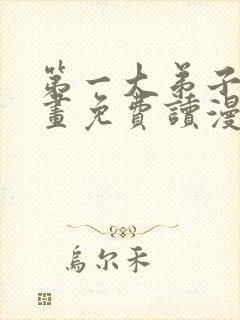 第一大弟子
畫免費讀漫
烏尔禾